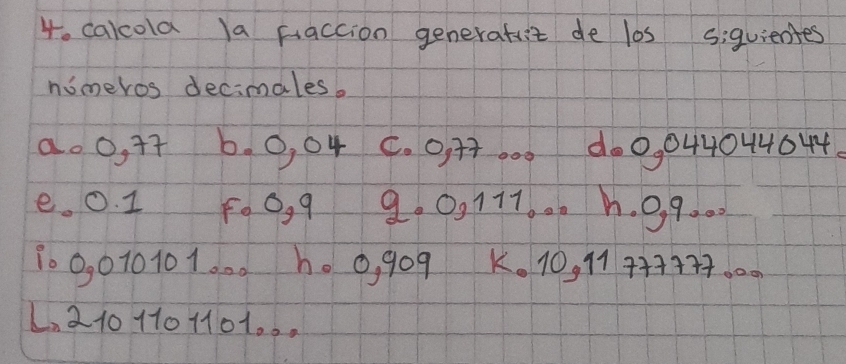 4. calcola la fraccion generatriz de los siguientes
números decimales.
a. 0,77 b. 0,04 c. 0,77... d. 0,044044044.
e. 0.1 F. 0,9 g. 0,111... h. 0,9...
i. 0,010101... h. 0,909 K. 10,11777777...
L. 2101101101...